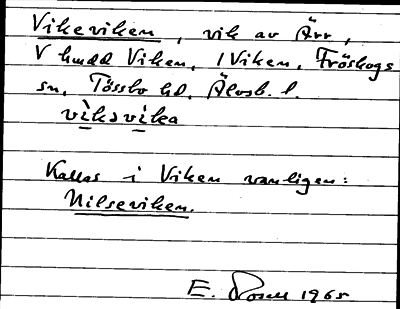 Vikeviken, vik av Ärr,
V hmdd Viken, 1 Viken, Fröskogs
sn, Tössbo hd, Älvsb. l.
vìksvìka
Kallas i Viken vanligen:
Nilseviken.
E. Rosell 1965